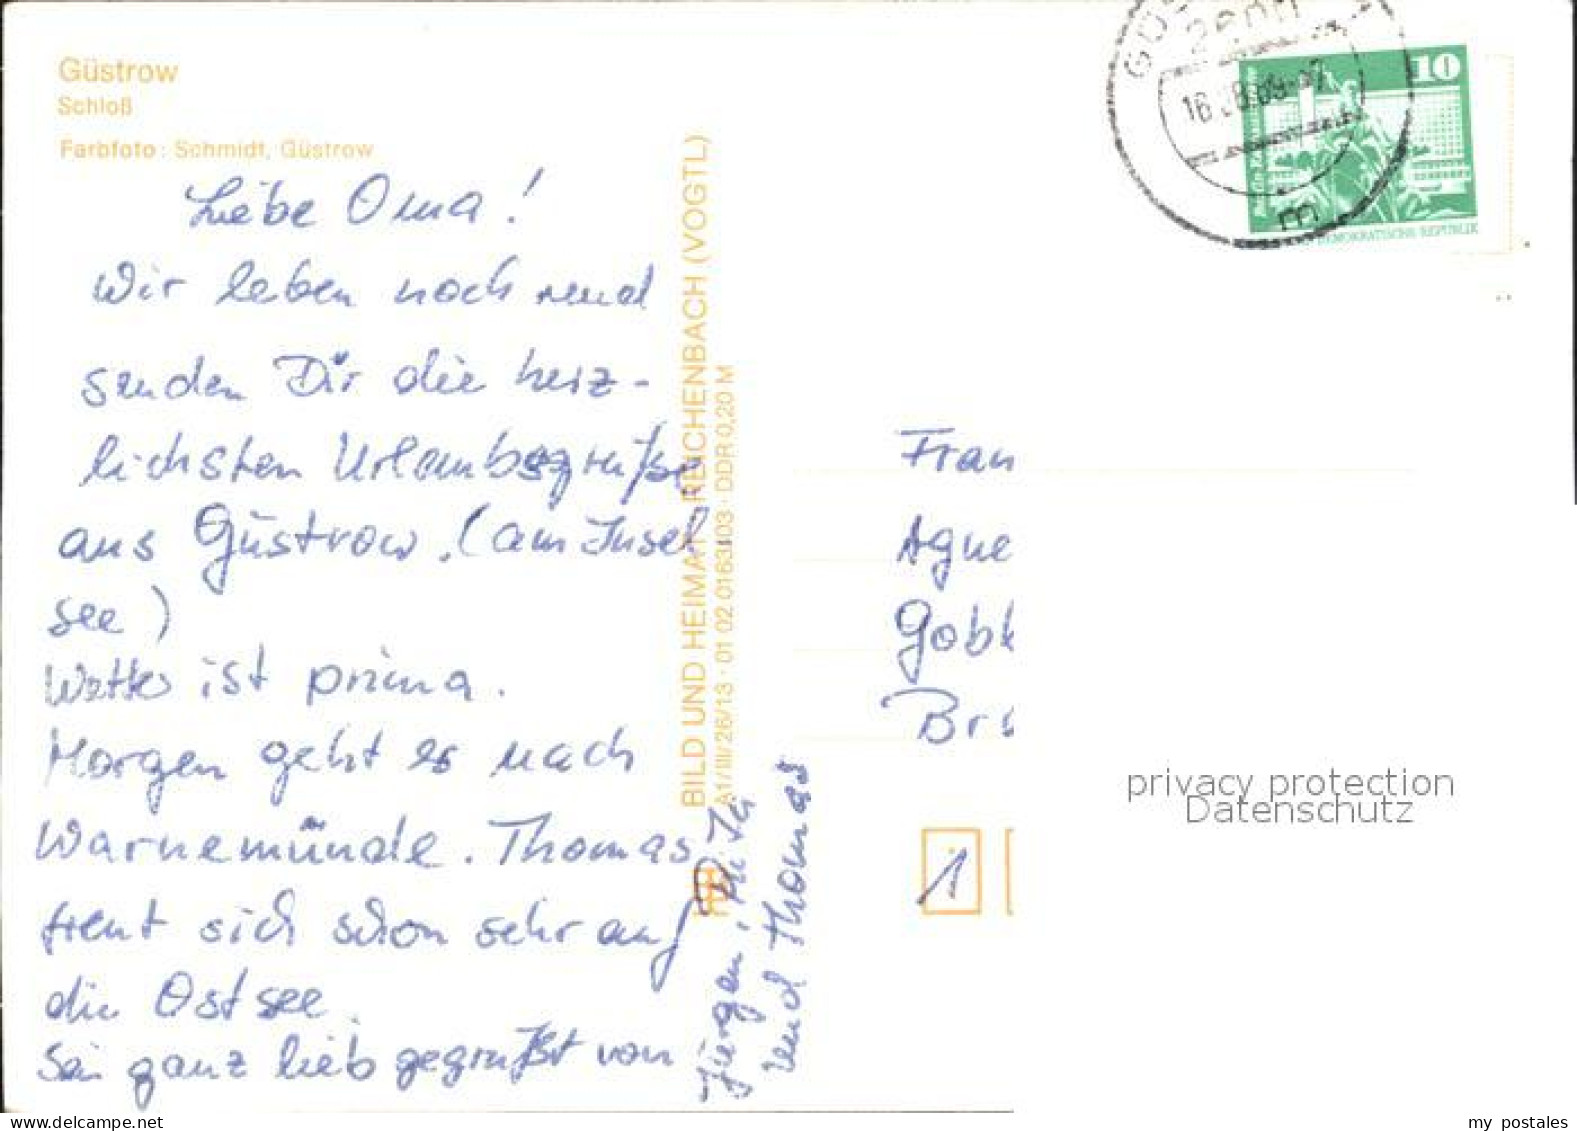 Güstrow
Schloß
Farbfoto: Schmidt, Güstrow
Liebe Oma!
Wir leben noch und
senden Dir die herz-
lichsten Urlaubsgrüße
aus Güstrow. (am Insel
see)
Wetter ist prima.
Morgen geht es nach
Warnemünde. Thomas
freut sich schon sehr auf
die Ostsee.
Sei ganz lieb gegrüßt von
Jürgen, Ruta
und Thomas
BILD UND HEIMAT REICHENBACH (VOGTL)
A1/III/26/13 · 01 02 0163/03 · DDR 0,20 M
2600
10
DEMOKRATISCHE REPUBLIK
Frau
Agne
Gobk
Brü
1
privacy protection
Datenschutz
my postales